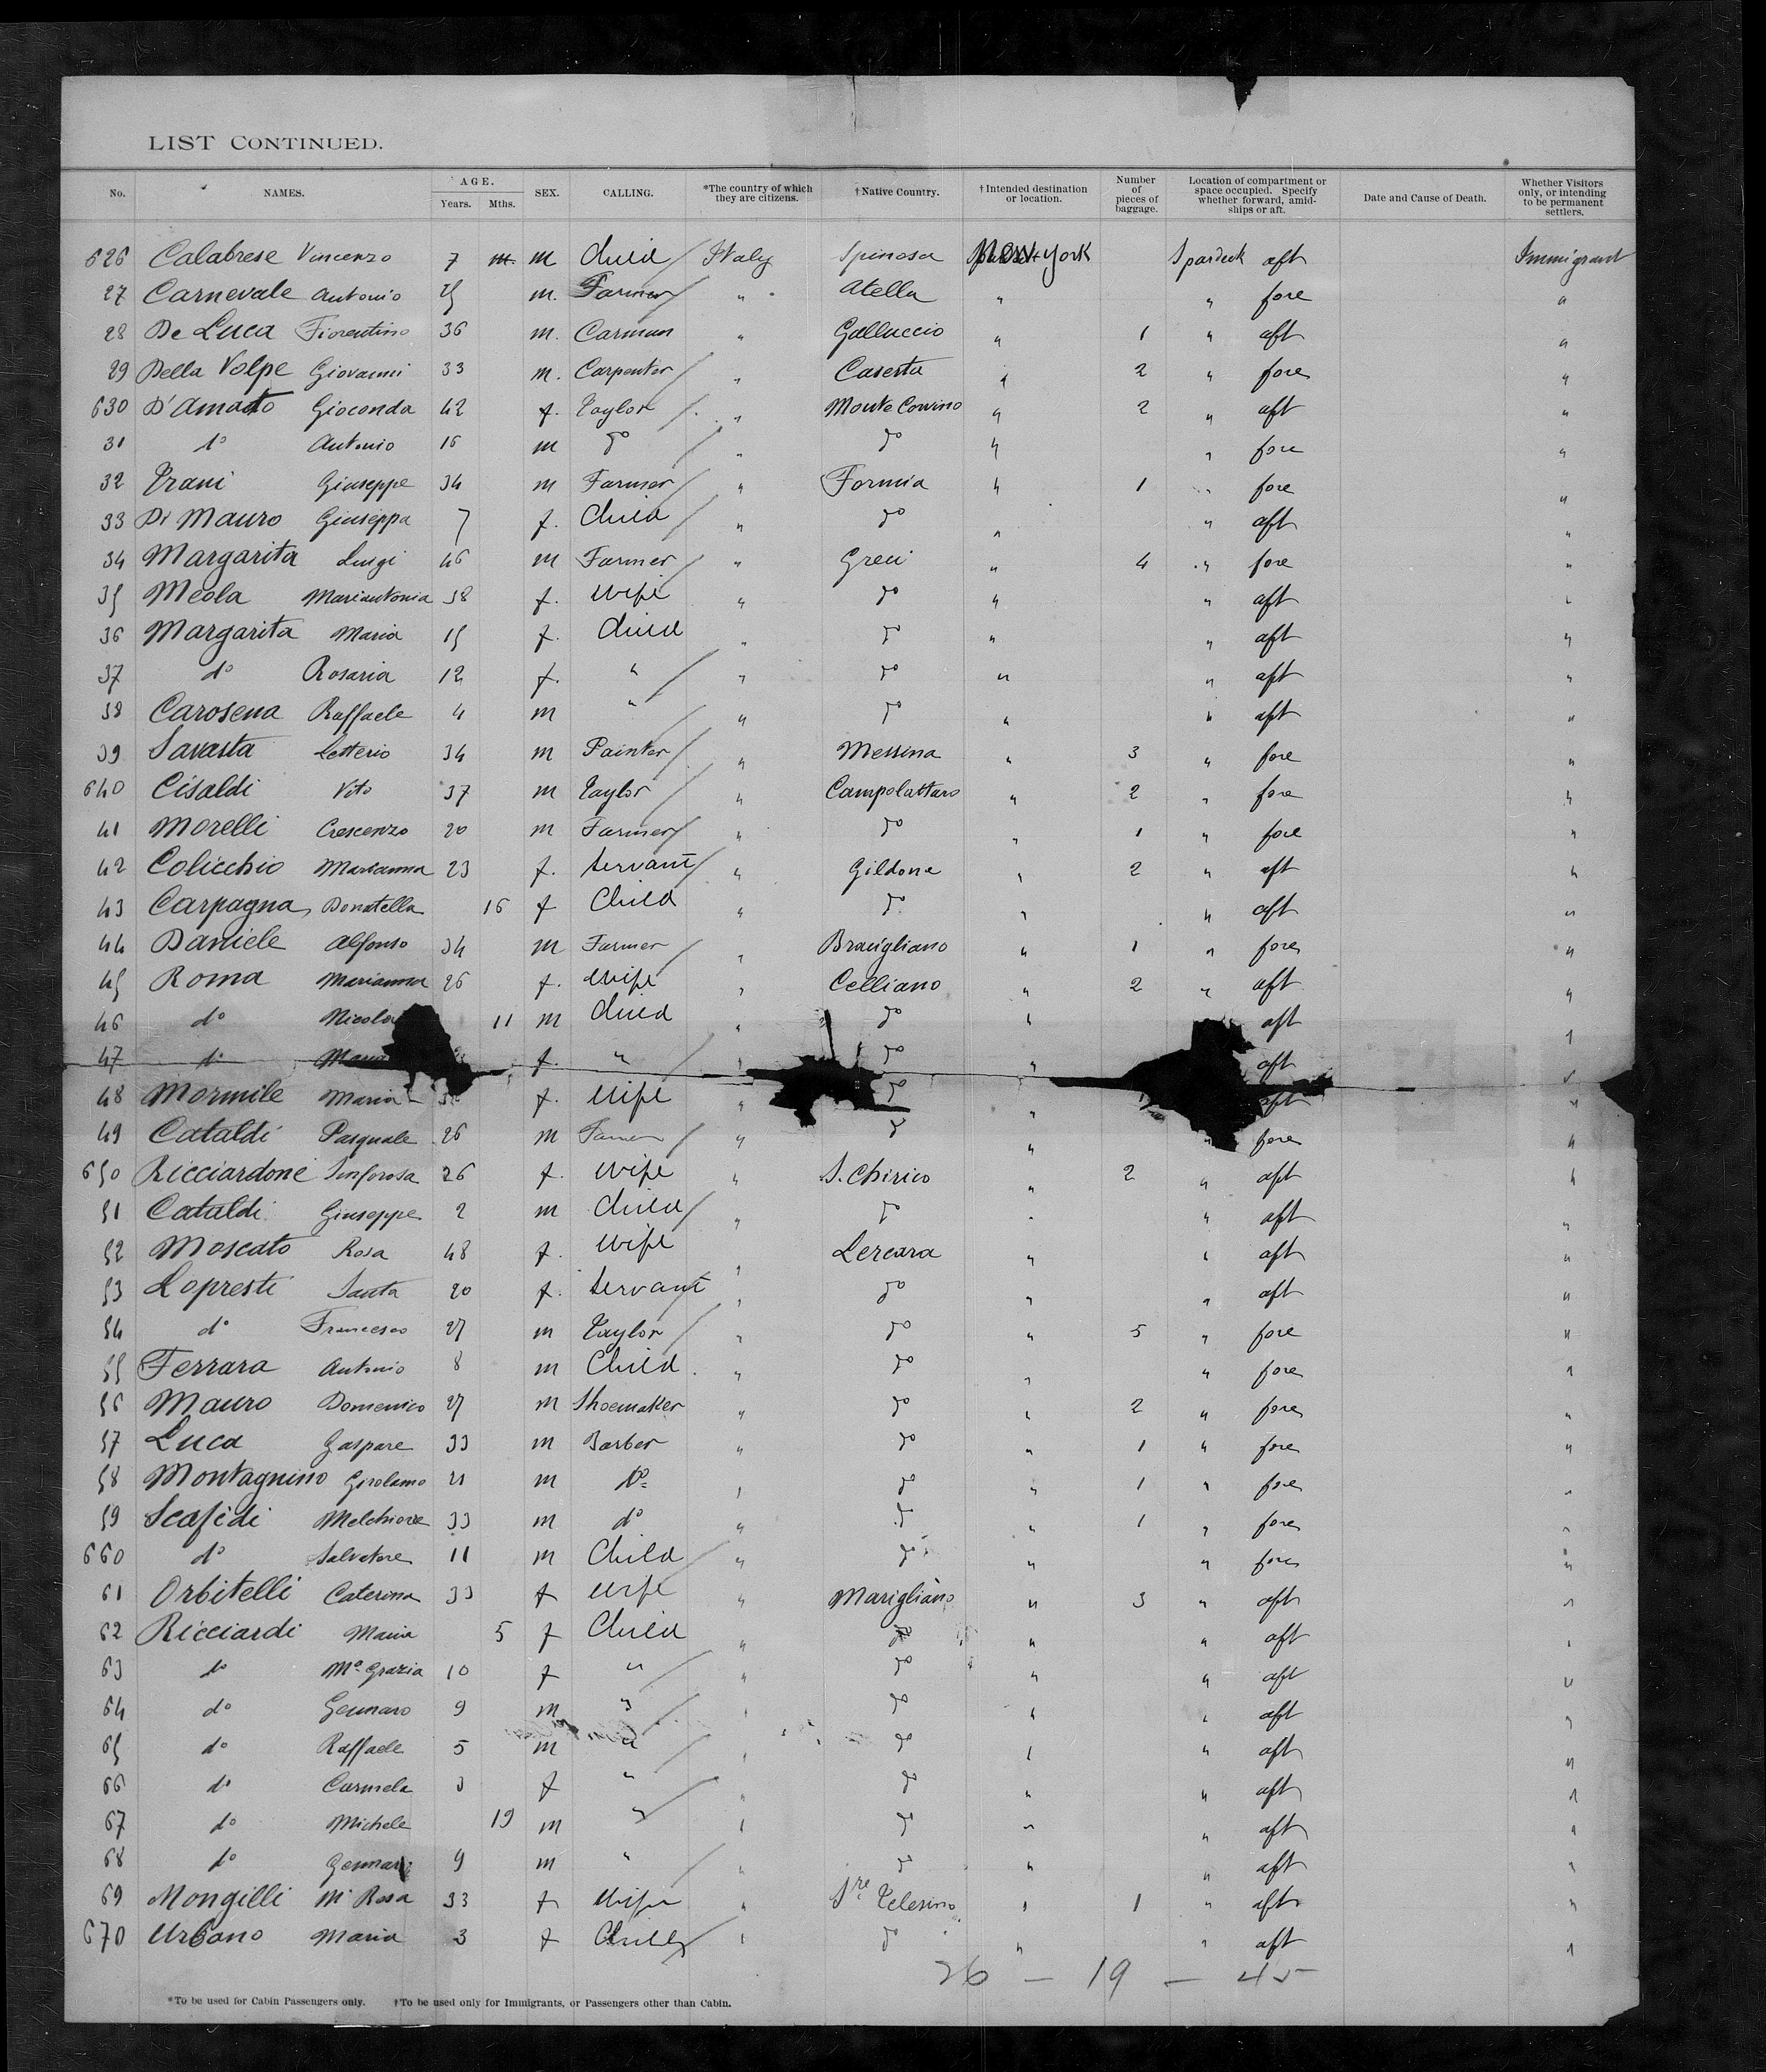 LIST CONTINUED.
No. NAMES. AGE. Years. Mths. SEX. CALLING. *The country of which they are citizens. †Native Country. †Intended destination or location. Number of pieces of baggage. Location of compartment or space occupied. Specify whether forward, amidships or aft. Date and Cause of Death. Whether Visitors only, or intending to be permanent settlers.
626 Calabrese Vincenzo 7 m Child Italy Spinosa New-York Spardeck aft Immigrant
27 Carnevale Antonio 25 m. Farmer " Atella " " fore "
28 De Luca Fiorentino 36 m. Carman " Galluccio " 1 " aft "
29 Della Volpe Giovanni 33 m. Carpenter " Caserta " 2 " fore "
630 D'Amato Gioconda 42 f. Taylor " Monte Corvino " 2 " aft "
31 do Antonio 16 m do " do " " fore "
32 Trani Giuseppe 34 m Farmer " Formia " 1 " fore "
33 Di Mauro Giuseppa 7 f. Child " do " " aft "
34 Margarita Luigi 46 m Farmer " Greci " 4 " fore "
35 Meola Mariantonia 38 f. Wife " do " " aft "
36 Margarita Maria 15 f. Child " do " " aft "
37 do Rosaria 12 f. " " do " " aft "
38 Carosena Raffaele 4 m " " do " " aft "
39 Savasta Letterio 34 m Painter " Messina " 3 " fore "
640 Cisaldi Vito 37 m Taylor " Campolattaro " 2 " fore "
41 Morelli Crescenzo 20 m Farmer " do " 1 " fore "
42 Colicchio Marianna 23 f. Servant " Gildone " 2 " aft "
43 Carpagna Donatella 16 f Child " do " " aft "
44 Daniele Alfonso 34 m Farmer " Bracigliano " 1 " fore "
45 Roma Marianna 26 f. Wife " Celliano " 2 " aft "
46 do Nicola 11 m Child " do " aft "
47 do Maria f. " " do " aft "
48 Mormile Maria f. Wife " do " aft "
49 Cataldi Pasquale 26 m Farmer " do " " fore "
650 Ricciardone Sinforosa 26 f. Wife " S. Chirico " 2 " aft "
51 Cataldi Giuseppe 2 m Child " do " " aft "
52 Moscato Rosa 48 f. Wife " Lercara " " aft "
53 Lopresti Santa 20 f. Servant " do " " aft "
54 do Francesco 27 m Taylor " do " 5 " fore "
55 Ferrara Antonio 8 m Child " do " " fore "
56 Mauro Domenico 27 m Shoemaker " do " 2 " fore "
57 Luca Gaspare 33 m Barber " do " 1 " fore "
58 Montagnino Girolamo 21 m do " do " 1 " fore "
59 Scafidi Melchiorre 33 m do " do " 1 " fore "
660 do Salvatore 11 m Child " do " " fore "
61 Orbitelli Caterina 33 f Wife " Marigliano " 3 " aft "
62 Ricciardi Maria 5 f Child " do " " aft "
63 do Ma Grazia 10 f " " do " " aft "
64 do Gennaro 9 m " " do " " aft "
65 do Raffaele 5 m " " do " " aft "
66 do Carmela 3 f " " do " " aft "
67 do Michele 19 m " " do " " aft "
68 do Gennaro 9 m " " do " " aft "
69 Mongilli Ma Rosa 33 f Wife " Sre Telesino " 1 " aft "
670 Urbano Maria 3 f Child " do " " aft "
26 — 19 — 45
*To be used for Cabin Passengers only. †To be used only for Immigrants, or Passengers other than Cabin.